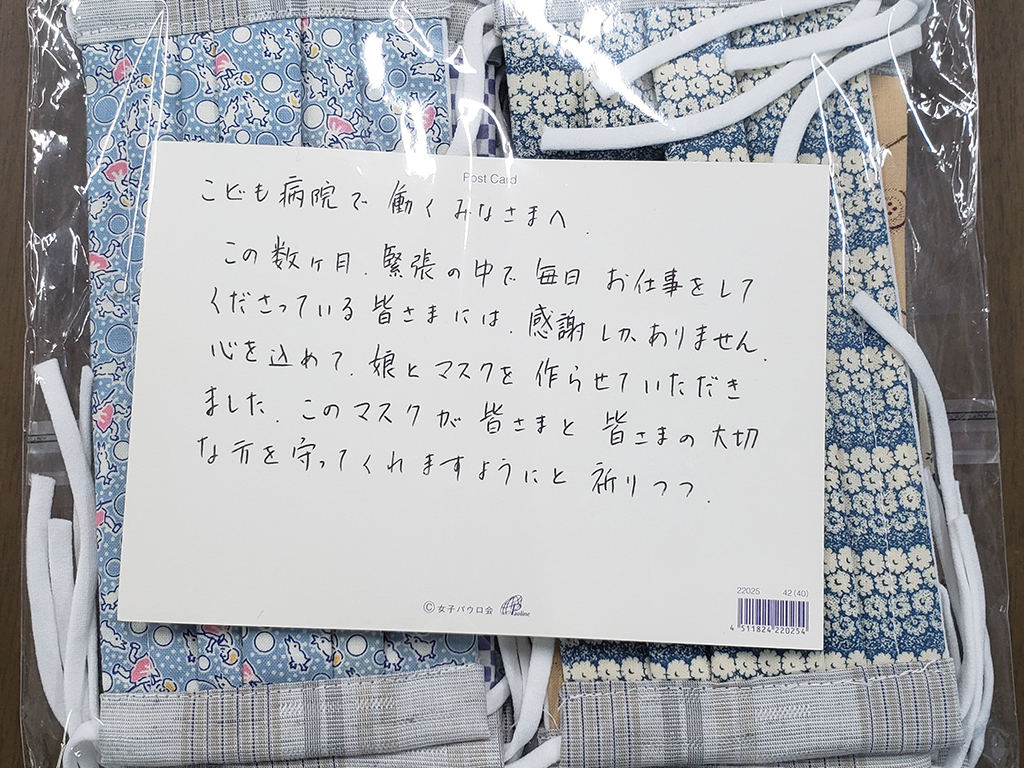 Post Card
こども病院で働くみなさまへ.
この数ヶ月、緊張の中で毎日お仕事をして
くださっている皆さまには、感謝しかありません.
心を込めて、娘とマスクを作らせていただき
ました. このマスクが皆さまと皆さまの大切
な方を守ってくれますようにと祈りつつ.
©女子パウロ会
22025 42(40)
4 511824 220254